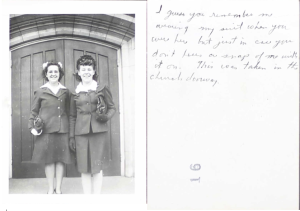 I guess you remember me
wearing my suit when you
were here but just in case you
don't here's a snap of me with
it on. This was taken in the
church doorway
16